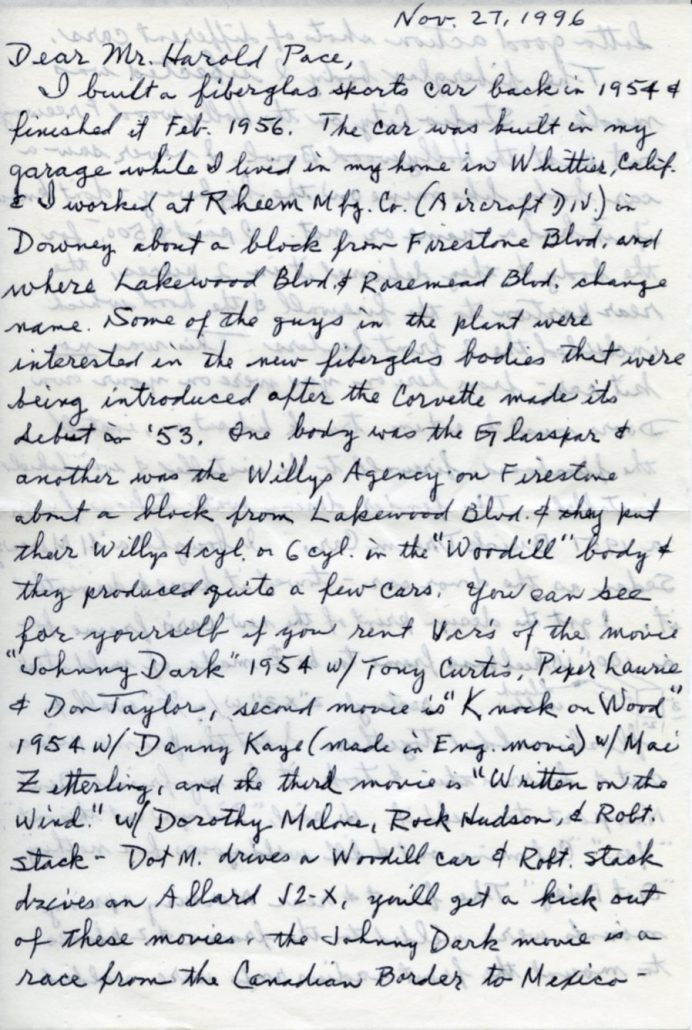 Nov. 27, 1996
Dear Mr. Harold Pace,
I built a fiberglas sports car back in 1954 &
finished it Feb. 1956. The car was built in my
garage while I lived in my home in Whittier, Calif.
& I worked at Rheem Mfg. Co. (Aircraft Div.) in
Downey about a block from Firestone Blvd. and
where Lakewood Blvd. & Rosemead Blvd. change
name. Some of the guys in the plant were
interested in the new fiberglas bodies that were
being introduced after the Corvette made its
debut in '53. One body was the Glasspar &
another was the Willys Agency on Firestone
about a block from Lakewood Blvd. & they put
their Willys 4 cyl. or 6 cyl. in the "Woodill" body &
they produced quite a few cars. You can see
for yourself if you rent Vcr's of the movie
"Johnny Dark" 1954 w/ Tony Curtis, Piper Laurie
& Don Taylor, second movie is "Knock on Wood"
1954 w/ Danny Kaye (made in Eng. movie) w/ Mai
Zetterling, and the third movie is "Written on the
Wind." w/ Dorothy Malone, Rock Hudson, & Robt.
Stack - Dot M. drives a Woodill car & Robt. Stack
drives an Allard J2-X, you'll get a kick out
of these movies. the Johnny Dark movie is a
race from the Canadian Border to Mexico -